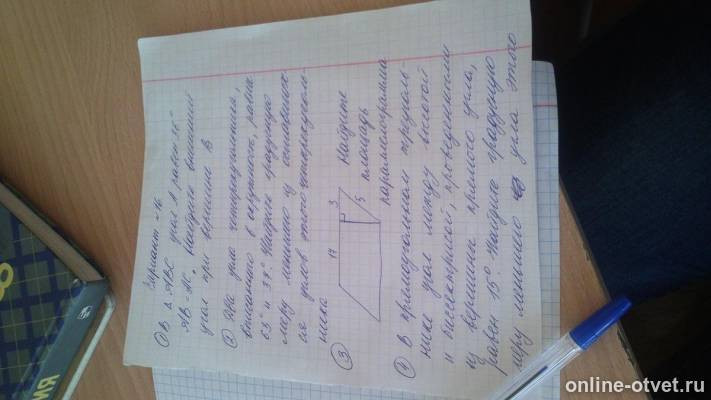 Вариант 16.
① В △ АВС угол А равен
АВ = АС. Найдите внешний
угол при вершине В
② Два угла четырёхугольника,
вписанного в окружность, равны
63° и 38°. Найдите градусную
меру меньшего из оставших-
ся углов этого четырёхуголь-
ника
③ 17 3 5 Найдите
площадь
параллелограмма
④ В прямоугольном треуголь-
нике угол между высотой
и биссектрисой, проведёнными
из вершины прямого угла,
равен 15°. Найдите градусную
меру меньшего угла этого
ИЯ
8
online-otvet.ru